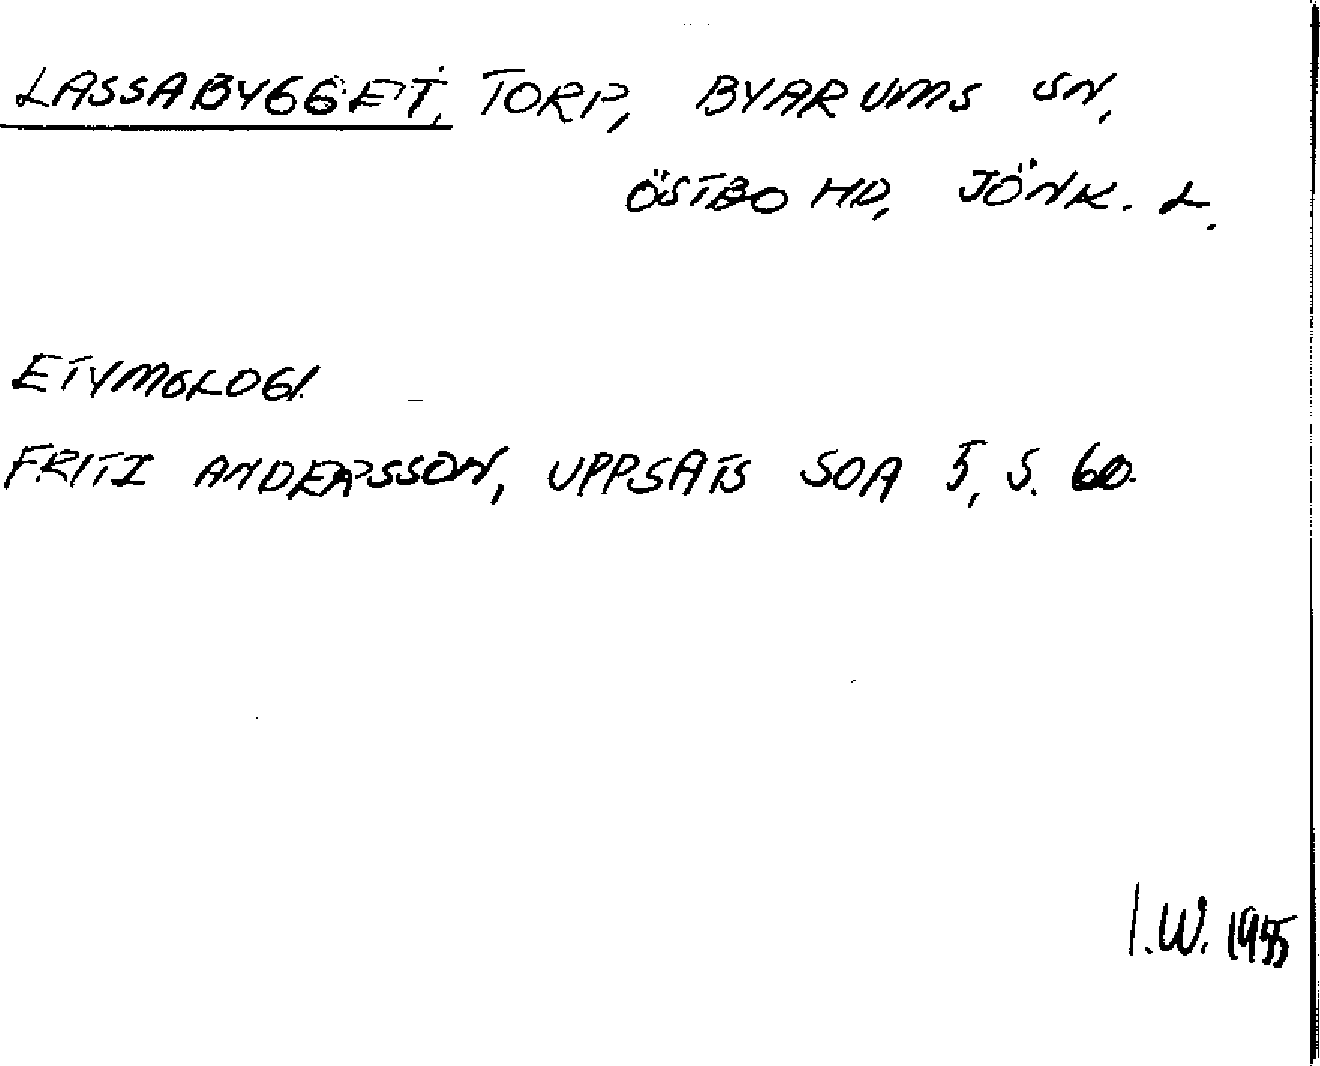 LASSABYGGET, TORP, BYARUMS SN,
ÖSTBO HD, JÖNK. L.
ETYMOLOGI.
FRITZ ANDERSSON, UPPSATS SOA 5, S. 60.
I.W. 1955